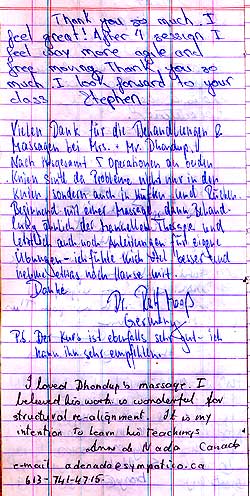 Thank you so much. I
feel great! After 1 session I
feel way more agile and
free moving. Thank you so
much. I look forward to your
class Stephen
Vielen Dank für die Behandlungen &
Massagen bei Mrs. + Mr. Dhandup.
Nach insgesamt 5 Operationen an beiden
Knien sind die Probleme nicht nur in den
Knien sondern auch in Hüften und Rücken.
Beginnend mit einer Massage, dann Behand-
lung ähnlich der manuellen Therapie und
letztlich auch noch Anleitungen für eigene
Übungen - ich fühle mich viel besser und
nehme etwas nach Hause mit.
Danke
Dr. Ralf
Germany
P.S. Der Kurs ist ebenfalls sehr gut - ich
kann ihn sehr empfehlen.
I loved Dhondup's massage. I
believed his work is wonderful for
structural re-alignment. It is my
intention to learn his teachings
Ann de Nada Canada
e-mail adenada@sympatico.ca
613-741-4715.